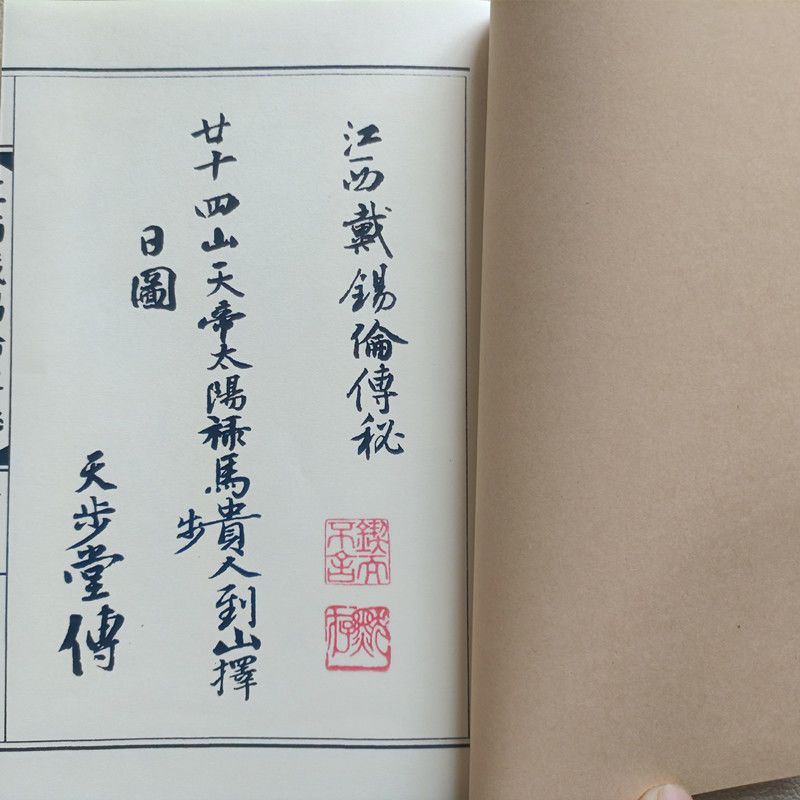 江西戴錫倫傳秘
廿十四山天帝太陽祿馬貴人到山擇
步
日圖
天步堂傳
鍥而不舍